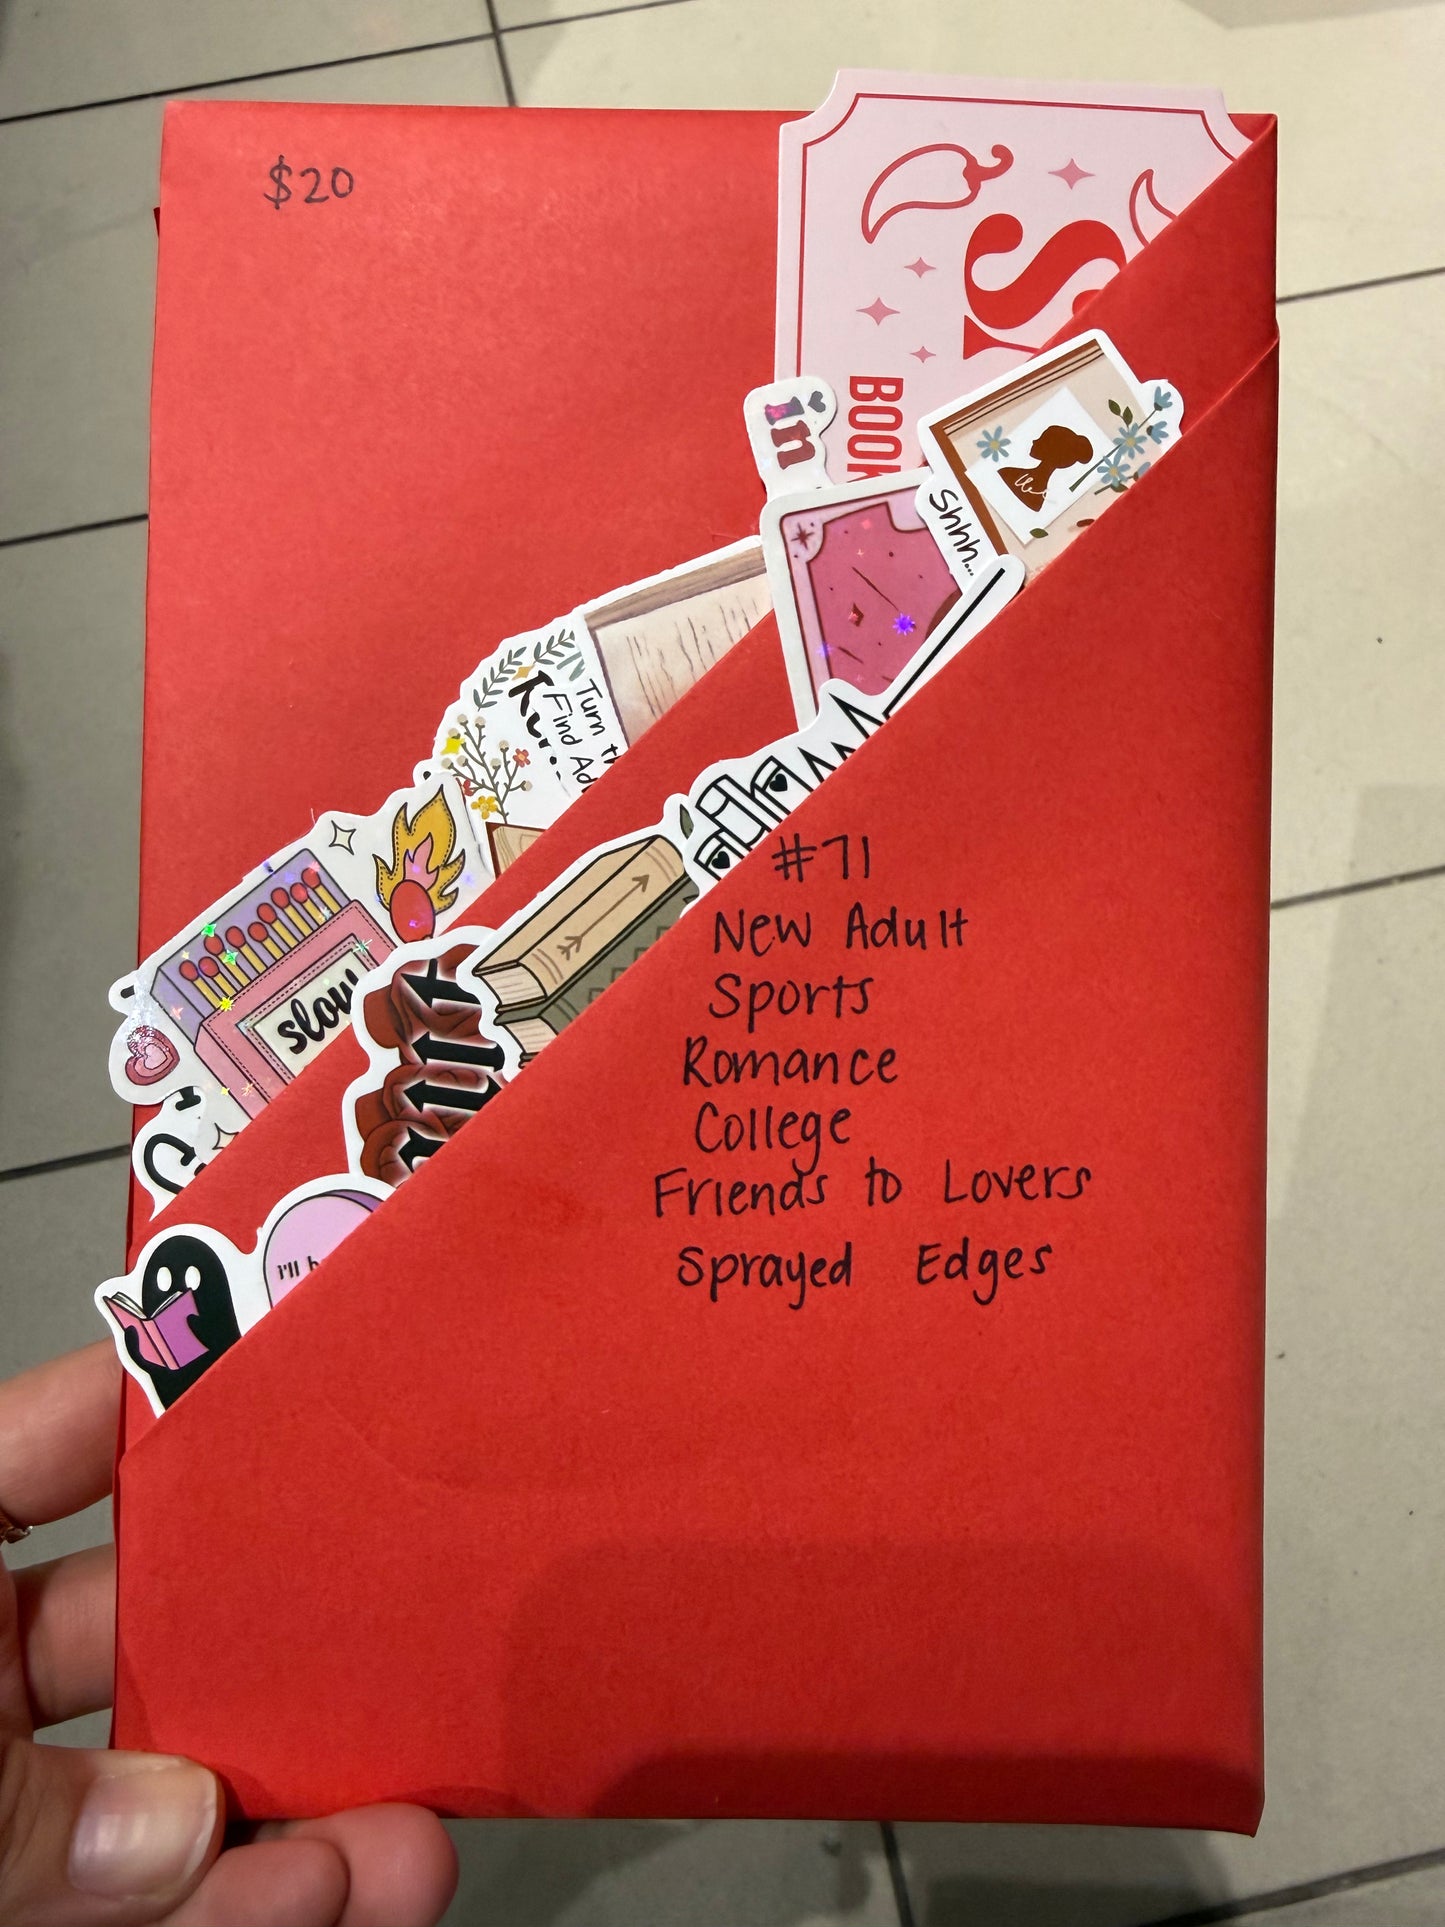 $20
BOOK
in
Shhh...
Turn th
Find Ad
slow
I'll b
#71
New Adult
Sports
Romance
College
Friends to Lovers
Sprayed Edges